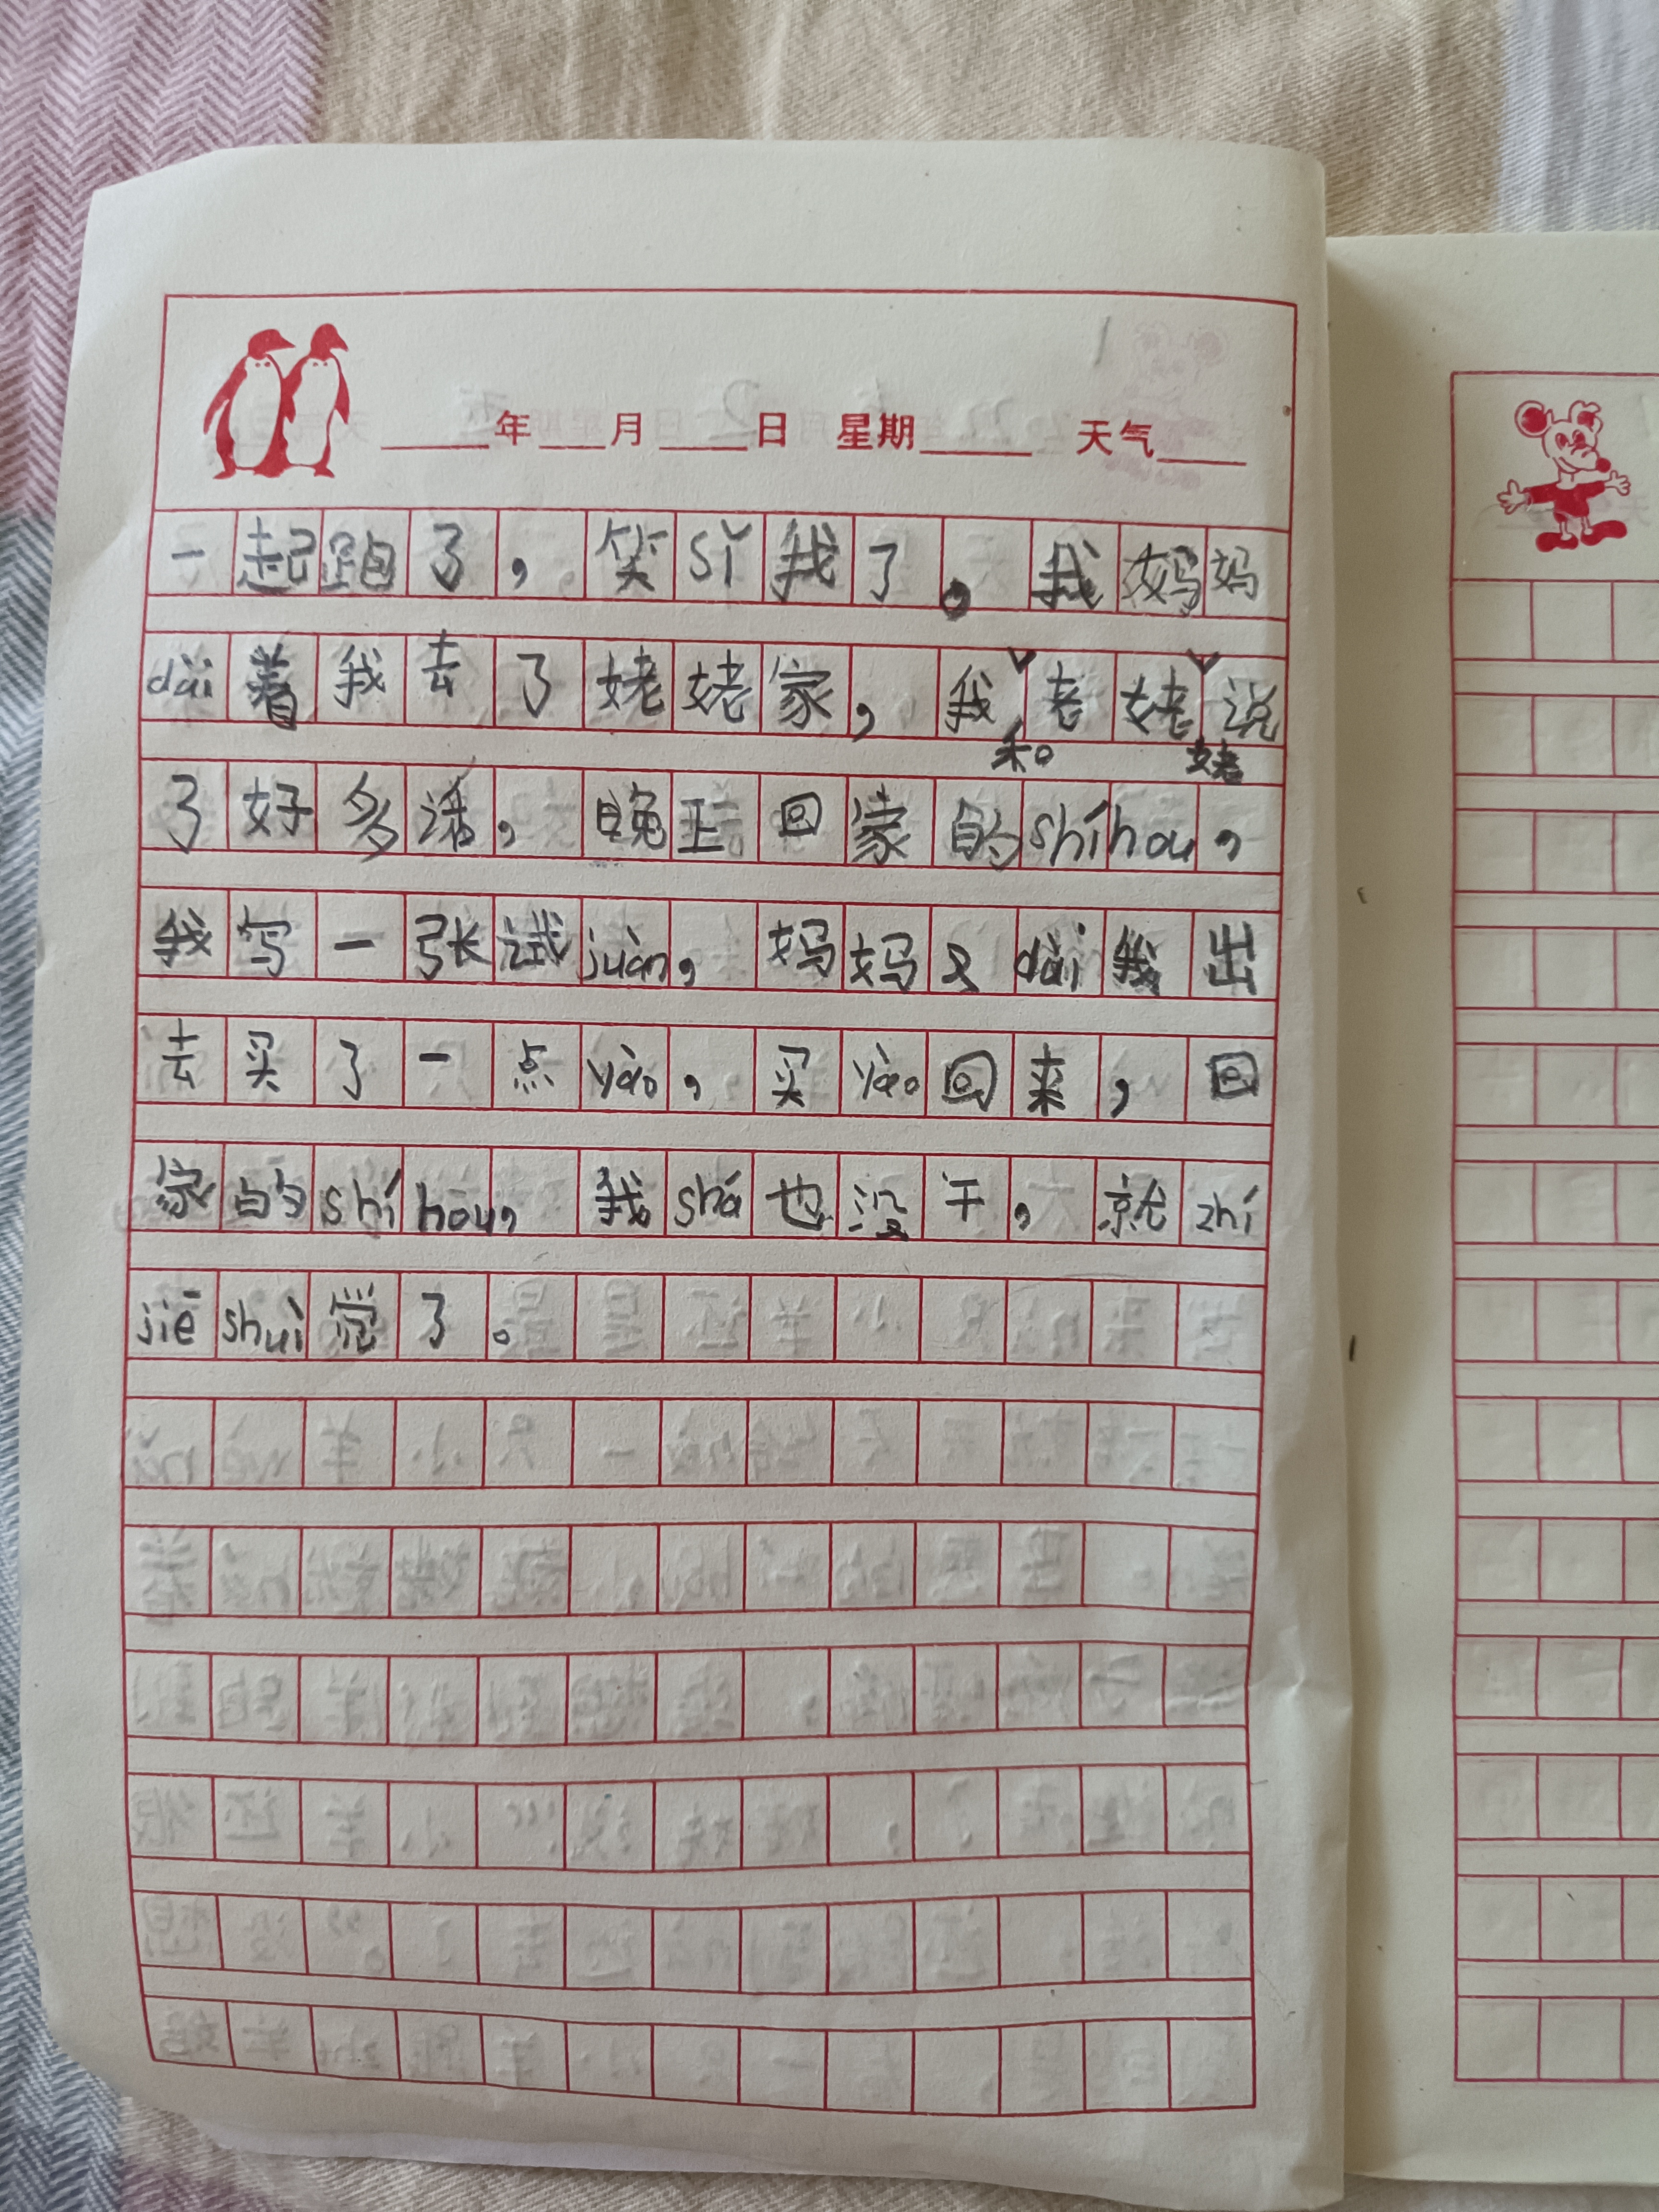 ____年___月____日 星期_____ 天气____
一起跑了，笑sǐ我了。我妈妈
dài着我去了姥姥家，我和老姥姥说
了好多话，晚上回家的shíhou，
我写一张试juàn，妈妈又dài我出
去买了一点yào，买yào回来，回
家的shíhou，我shá也没干，就zhí
jiē shuì觉了。